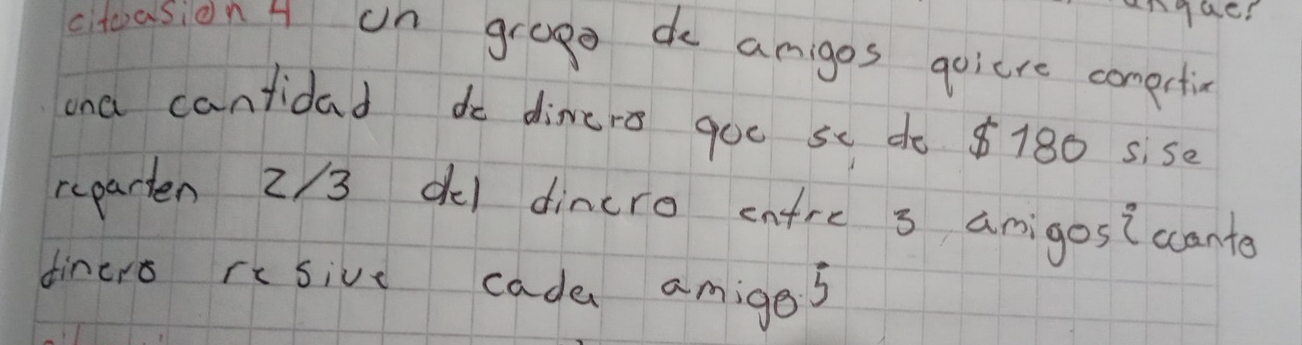 citoasion 4 un grupo de amigos quiere compartir
una cantidad de dinero que se de $ 180 si se
reparten 2/3 del dinero entre 3 amigos ¿ cuanto
dinero resive cada amigo?